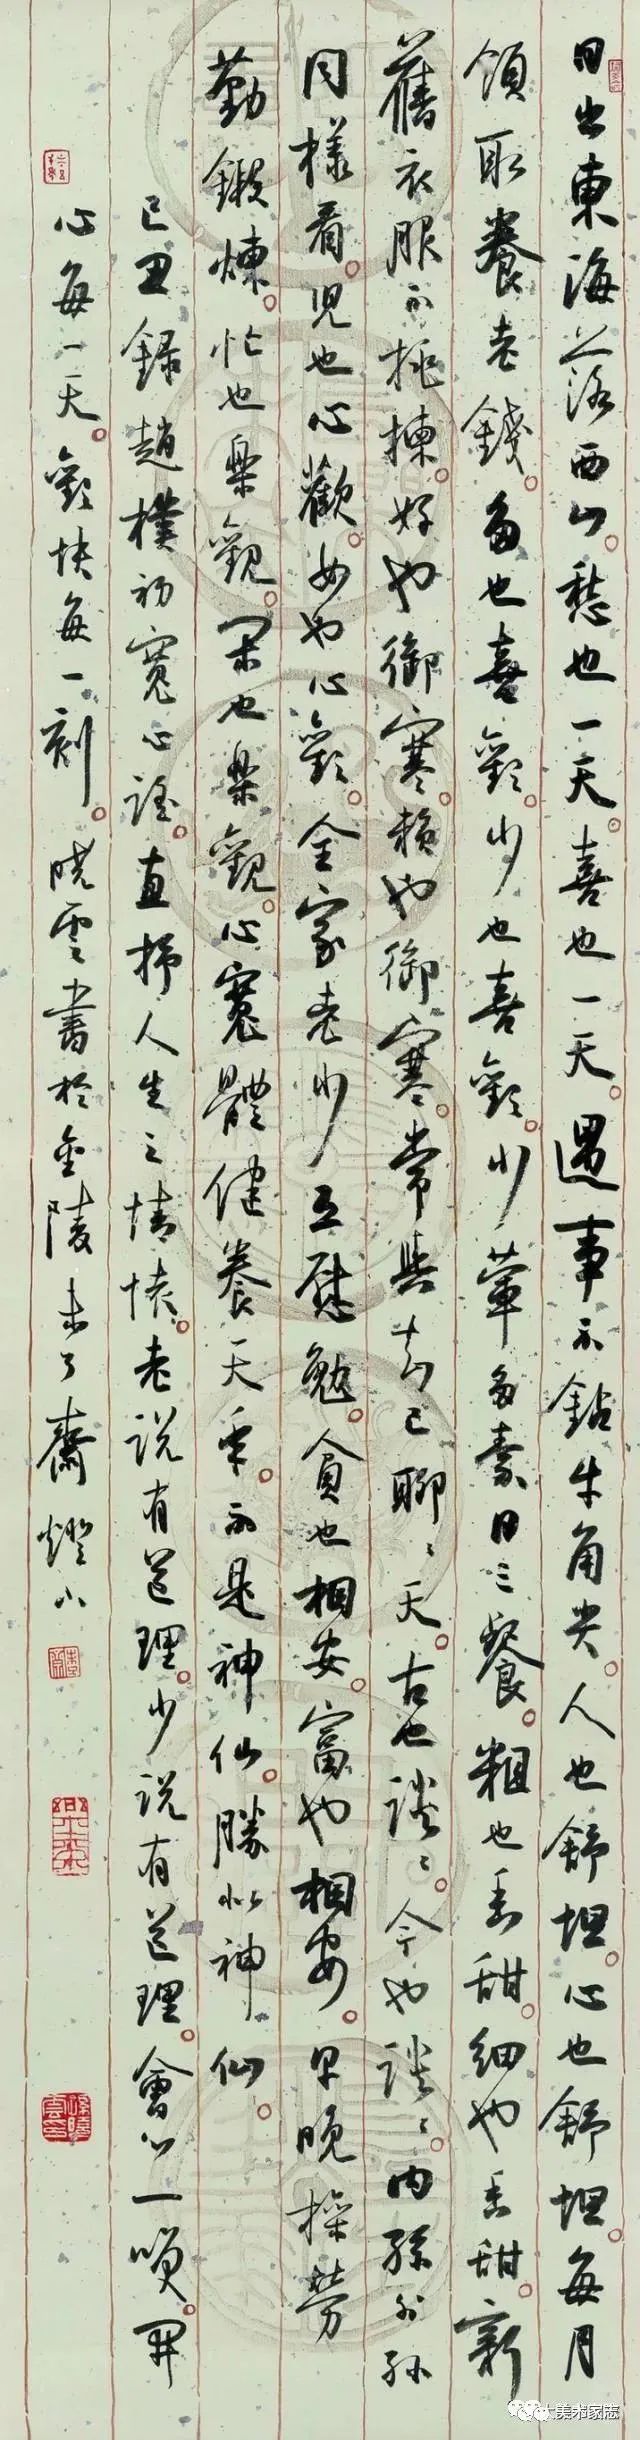 日出東海落西山。愁也一天。喜也一天。遇事不鉆牛角尖。人也舒坦。心也舒坦。每月
領取養老錢。多也喜歡。少也喜歡。少葷多素日三餐。粗也香甜。細也香甜。新
舊衣服不挑揀。好也御寒。賴也御寒。常與知己聊〻天。古也談〻。今也談〻。内孫外孫
同樣看。兒也心歡。女也心歡。全家老少互慰勉。貧也相安。富也相安。早晚操勞
勤鍛煉。忙也樂觀。閑也樂觀。心寬體健養天年。不是神仙。勝似神仙。
己丑錄趙樸初寬心謠。直抒人生之情懷。老說有道理。少說有道理。會心一咲。開
心每一天。歡快每一刻。曉雲書於金陵未了齋燈下
大美术家志